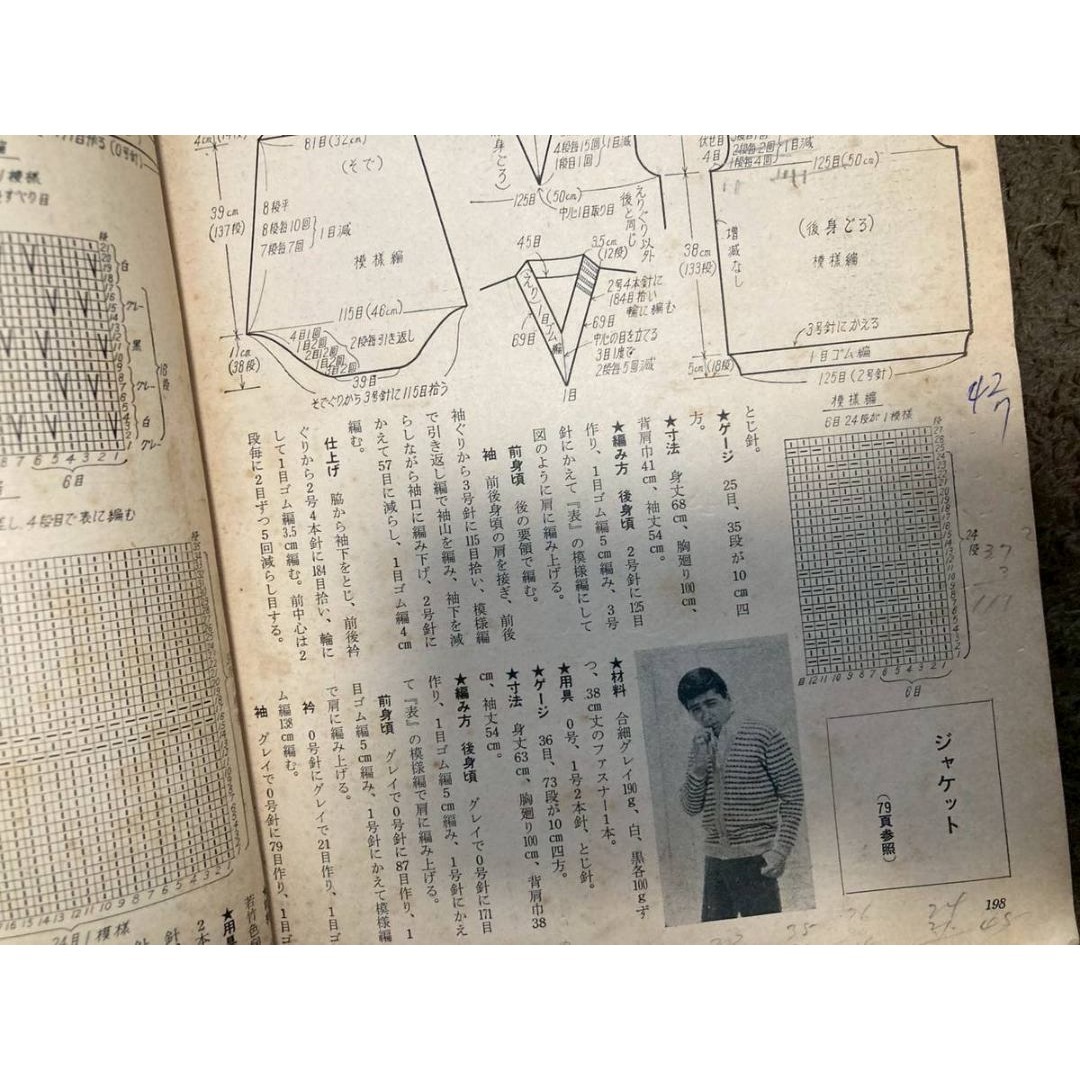 4cm(14段)
81目(32cm)
(そで)
39cm
(137段)
8段平
8段毎10回
7段毎7回
1目減
模様編
115目(46cm)
11cm
(38段)
4目1回
1目2回
2目2回
1目2回
3目2回
2段毎引き返し
39目
そでぐりから3号針に115目拾う
身ごろ)
4段毎15回
1段目1回
1目減
125目(50cm)
中心1目取り目
えりぐり以外
後と同じ
45目
3.5cm
(12段)
えり
1目ゴム編
69目
69目
2号4本針に
184目拾い
輪に編む
中心の目を立てる
3目1度で
2段毎5回減
1目
伏せ目
4目
2段毎2回
1段毎4回
1目減
125目(50cm)
38cm
(133段)
増減なし
(後身ごろ)
模様編
3号針にかえる
1目ゴム編
5cm(18段)
125目(2号針)
模様編
6目24段が1模様
24段
6目
42
7
とじ針。
★ゲージ 25目、35段が10cm四
方。
★寸法 身丈68cm、胸廻り100cm、
背肩巾41cm、袖丈54cm。
★編み方 後身頃 2号針に125目
作り、1目ゴム編5cm編み、3号
針にかえて『表』の模様編にして
図のように肩に編み上げる。
前身頃 後の要領で編む。
袖 前後身頃の肩を接ぎ、前後
袖ぐりから3号針に115目拾い、模様編
で引き返し編で袖山を編み、袖下を減
らしながら袖口に編み下げ、2号針に
かえて57目に減らし、1目ゴム編4cm
編む。
仕上げ 脇から袖下をとじ、前後衿
ぐりから2号4本針に184目拾い、輪に
して1目ゴム編3.5cm編む。前中心は2
段毎に2目ずつ5回減らし目する。
ジャケット
(79頁参照)
★材料 合細グレイ190g、白、黒各100gず
つ、38cm丈のファスナー1本。
★用具 0号、1号2本針、とじ針。
★ゲージ 36目、73段が10cm四方。
★寸法 身丈63cm、胸廻り100cm、背肩巾38
cm、袖丈54cm。
★編み方 後身頃 グレイで0号針に171目
作り、1目ゴム編5cm編み、1号針にかえ
て『表』の模様編で肩に編み上げる。
前身頃 グレイで0号針に87目作り、1
目ゴム編5cm編み、1号針にかえて模様編
で肩に編み上げる。
衿 0号針にグレイで21目作り、1目ゴ
ム編138cm編む。
袖 グレイで0号針に79目作り、1目ゴ
198
(0号針)
1模様
すべり目
白
グレー
黒
グレー
白
グレー
18段
6目
4段目で表に編む
24目1模様
★用具